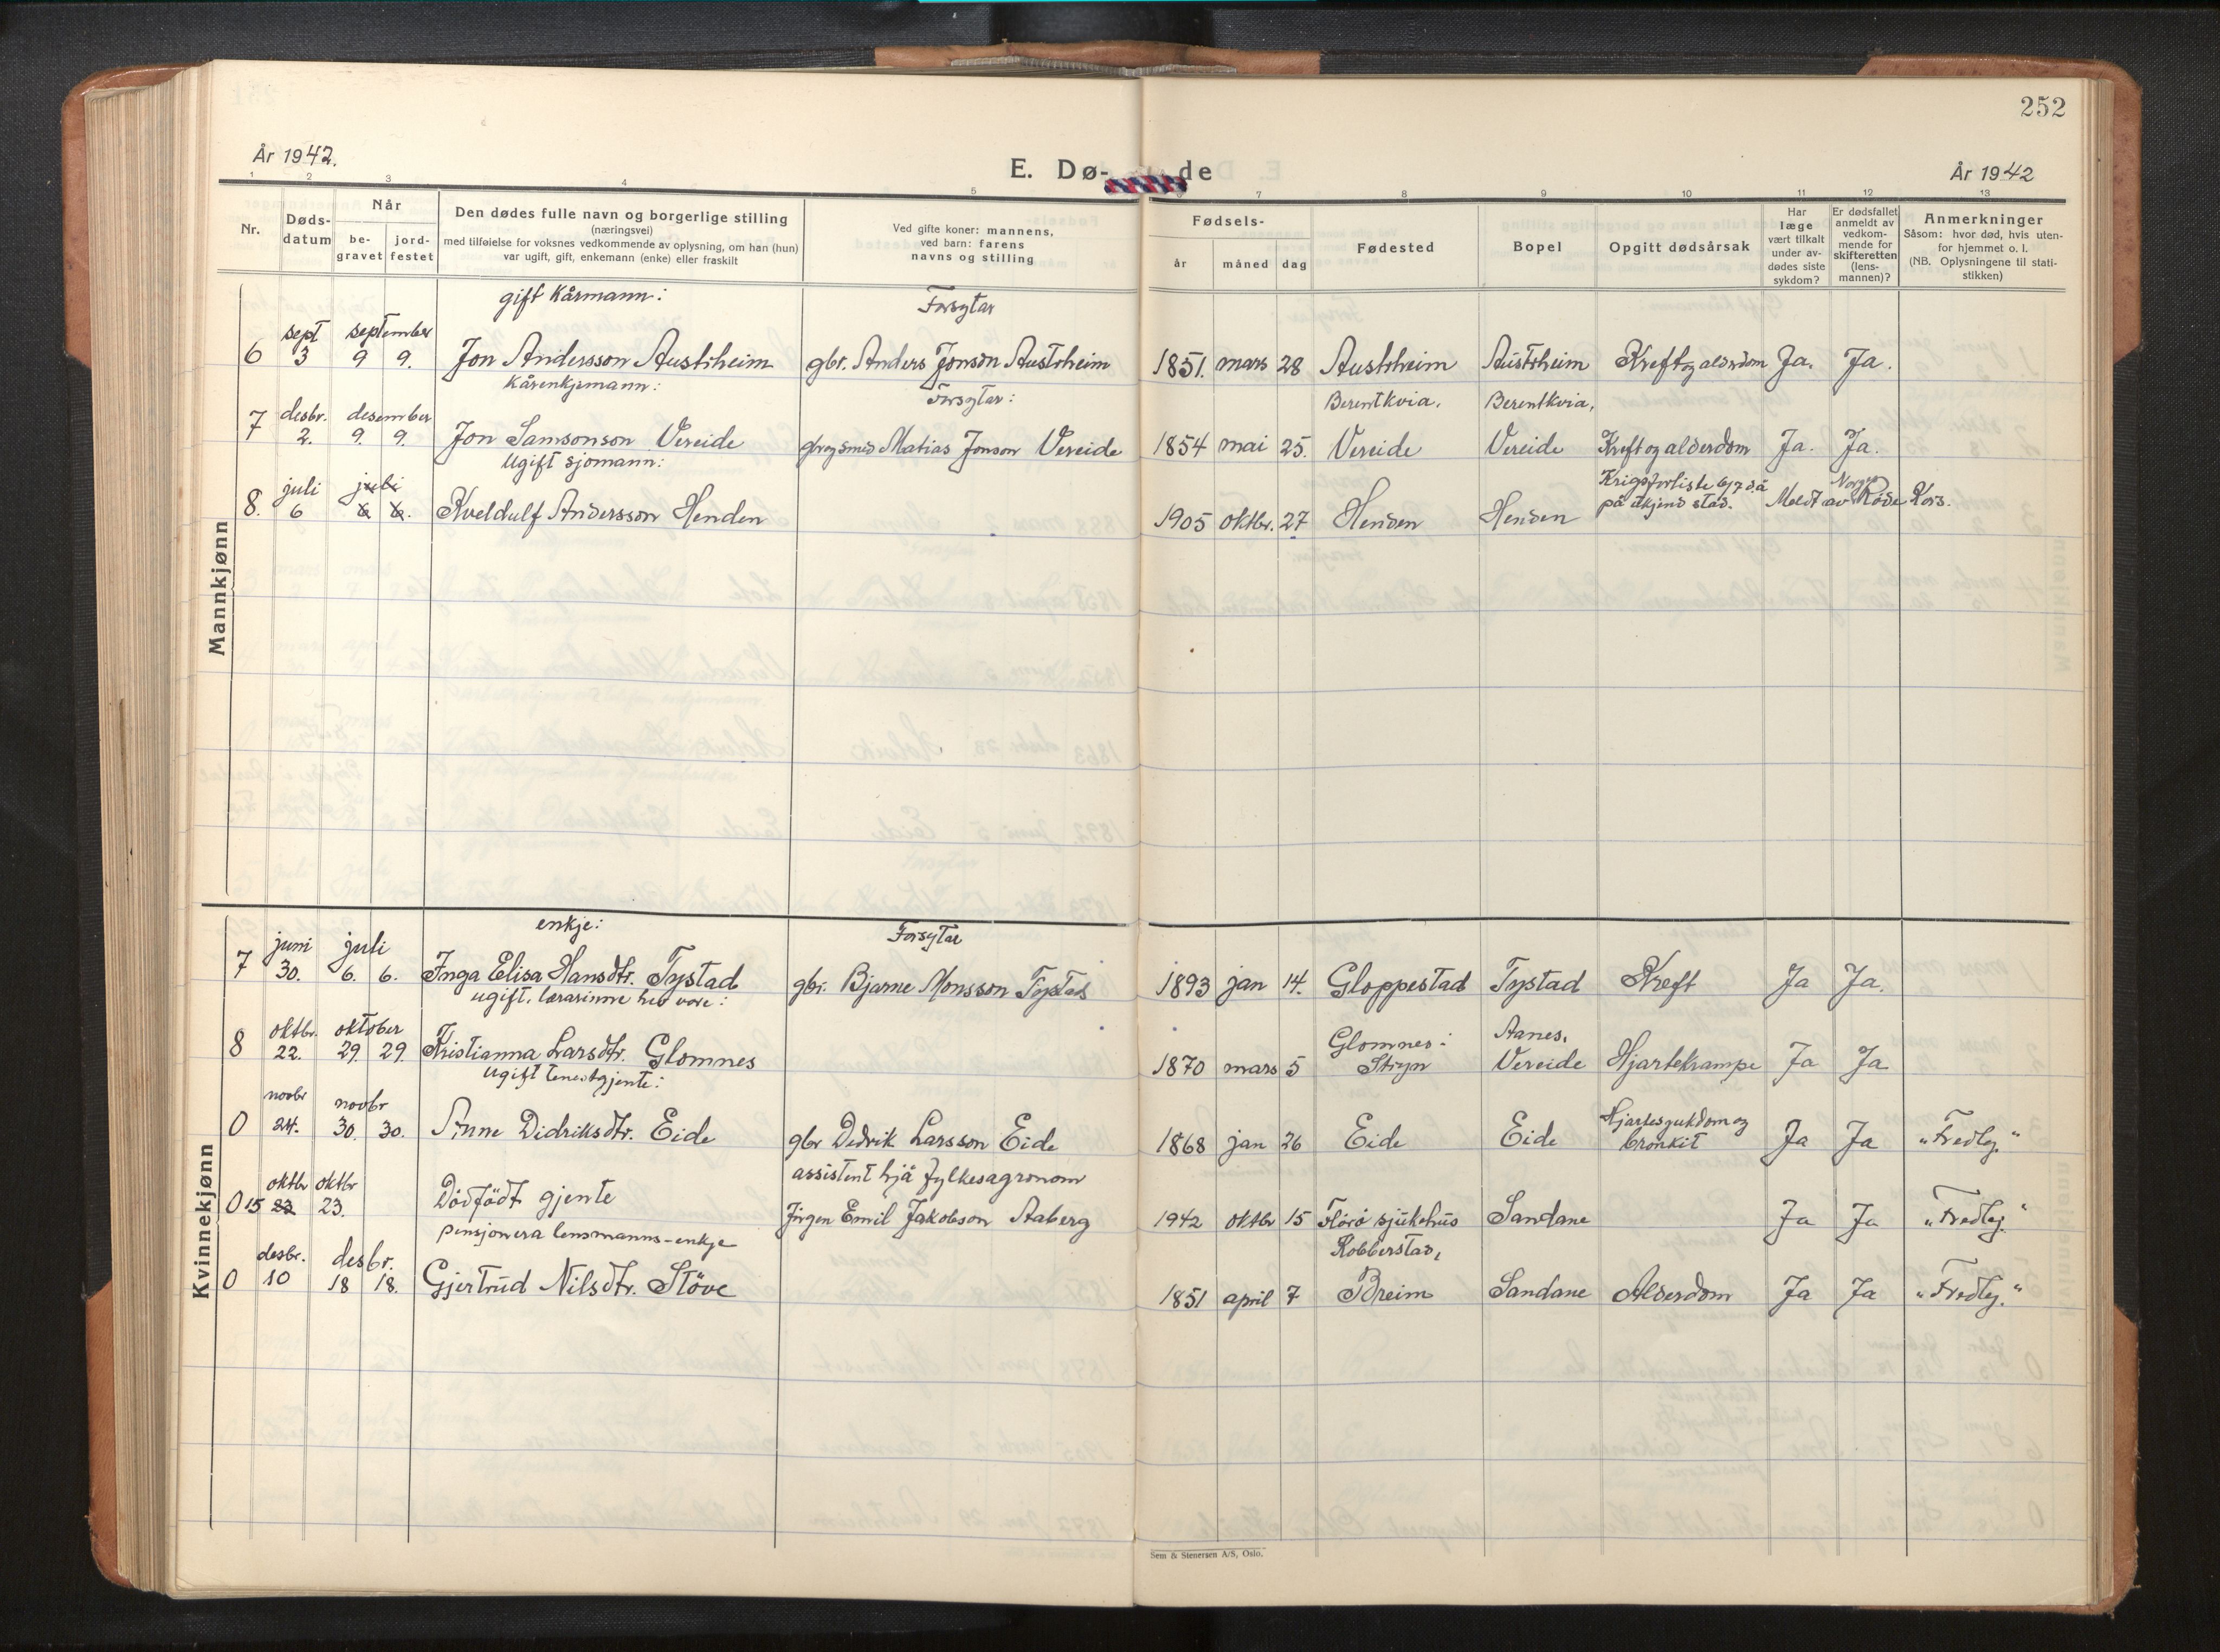 252
År 1942.
E. Dø- de
År 1942
1 2 3 4 5 7 8 9 10 11 12 13
Nr.
Døds-
datum
Når
be-
gravet
jord-
festet
Den dødes fulle navn og borgerlige stilling
(næringsvei)
med tilføielse for voksnes vedkommende av oplysning, om han (hun)
var ugift, gift, enkemann (enke) eller fraskilt
Ved gifte koner: mannens,
ved barn: farens
navns og stilling
Fødsels-
år måned dag
Fødested
Bopel
Opgitt dødsårsak
Har
læge
vært tilkalt
under av-
dødes siste
sykdom?
Er dødsfallet
anmeldt av
vedkom-
mende for
skifteretten
(lens-
mannen)?
Anmerkninger
Såsom: hvor død, hvis uten-
for hjemmet o. l.
(NB. Oplysningene til stati-
stikken)
Mannkjønn
gift kårmann: Forsytar
sept september
6 3 9 9. Jon Andersson Austrheim gbr. Anders Jonson Austrheim 1851. mars 28 Austrheim Austrheim Kreft og alderdom Ja. Ja.
kårenkjemann: Forsytar: Berentkvia, Berentkvia,
desbr. desember
7 2. 9. 9. Jon Samsonson Vereide Matias Jonson Vereide 1854 mai 25. Vereide Vereide Kreft og alderdom Ja. Ja.
Ugift sjømann: Krigsforliste 6/7 d.å
juli juli Norges
8. 6 6 6. Kveldulf Andersson Henden 1905 oktbr. 27 Henden Henden på ukjend stad. Meldt av Røde Kors.
Kvinnekjønn
enkje: Forsytar
juni juli
7 30. 6. 6. Inga Elisa Hansdtr. Tystad gbr. Bjarne Monsson Tystad 1893 jan 14. Gloppestad Tystad Kreft Ja Ja.
ugift. lærarinne
oktbr. oktober Glomnes i Aanes,
8 22. 29. 29. Kristianna Larsdtr. Glomnes 1870 mars 5 Stryn Vereide Hjartekrampe Ja Ja
Ugift tenestgjente:
novbr novbr Hjartesjukdom og
0 24. 30. 30. Anne Didriksdtr. Eide gbr Dedrik Larsson Eide 1868 jan 26 Eide Eide bronkit Ja Ja "Fredly."
assistent hjå fylkesagronom
oktbr oktbr
0 15 23 23. Dødfødt gjente Jørgen Emil Jakobson Aaberg 1942 oktbr 15 Florø sjukehus Sandane Ja Ja "Fredly."
pensjonera lensmanns-enkje Robberstad,
desbr. desbr.
0 10 18 18. Gjertrud Nilsdtr. Støve 1851 april 7 Breim Sandane Alderdom Ja Ja "Fredly."
Sem & Stenersen A/S, Oslo.